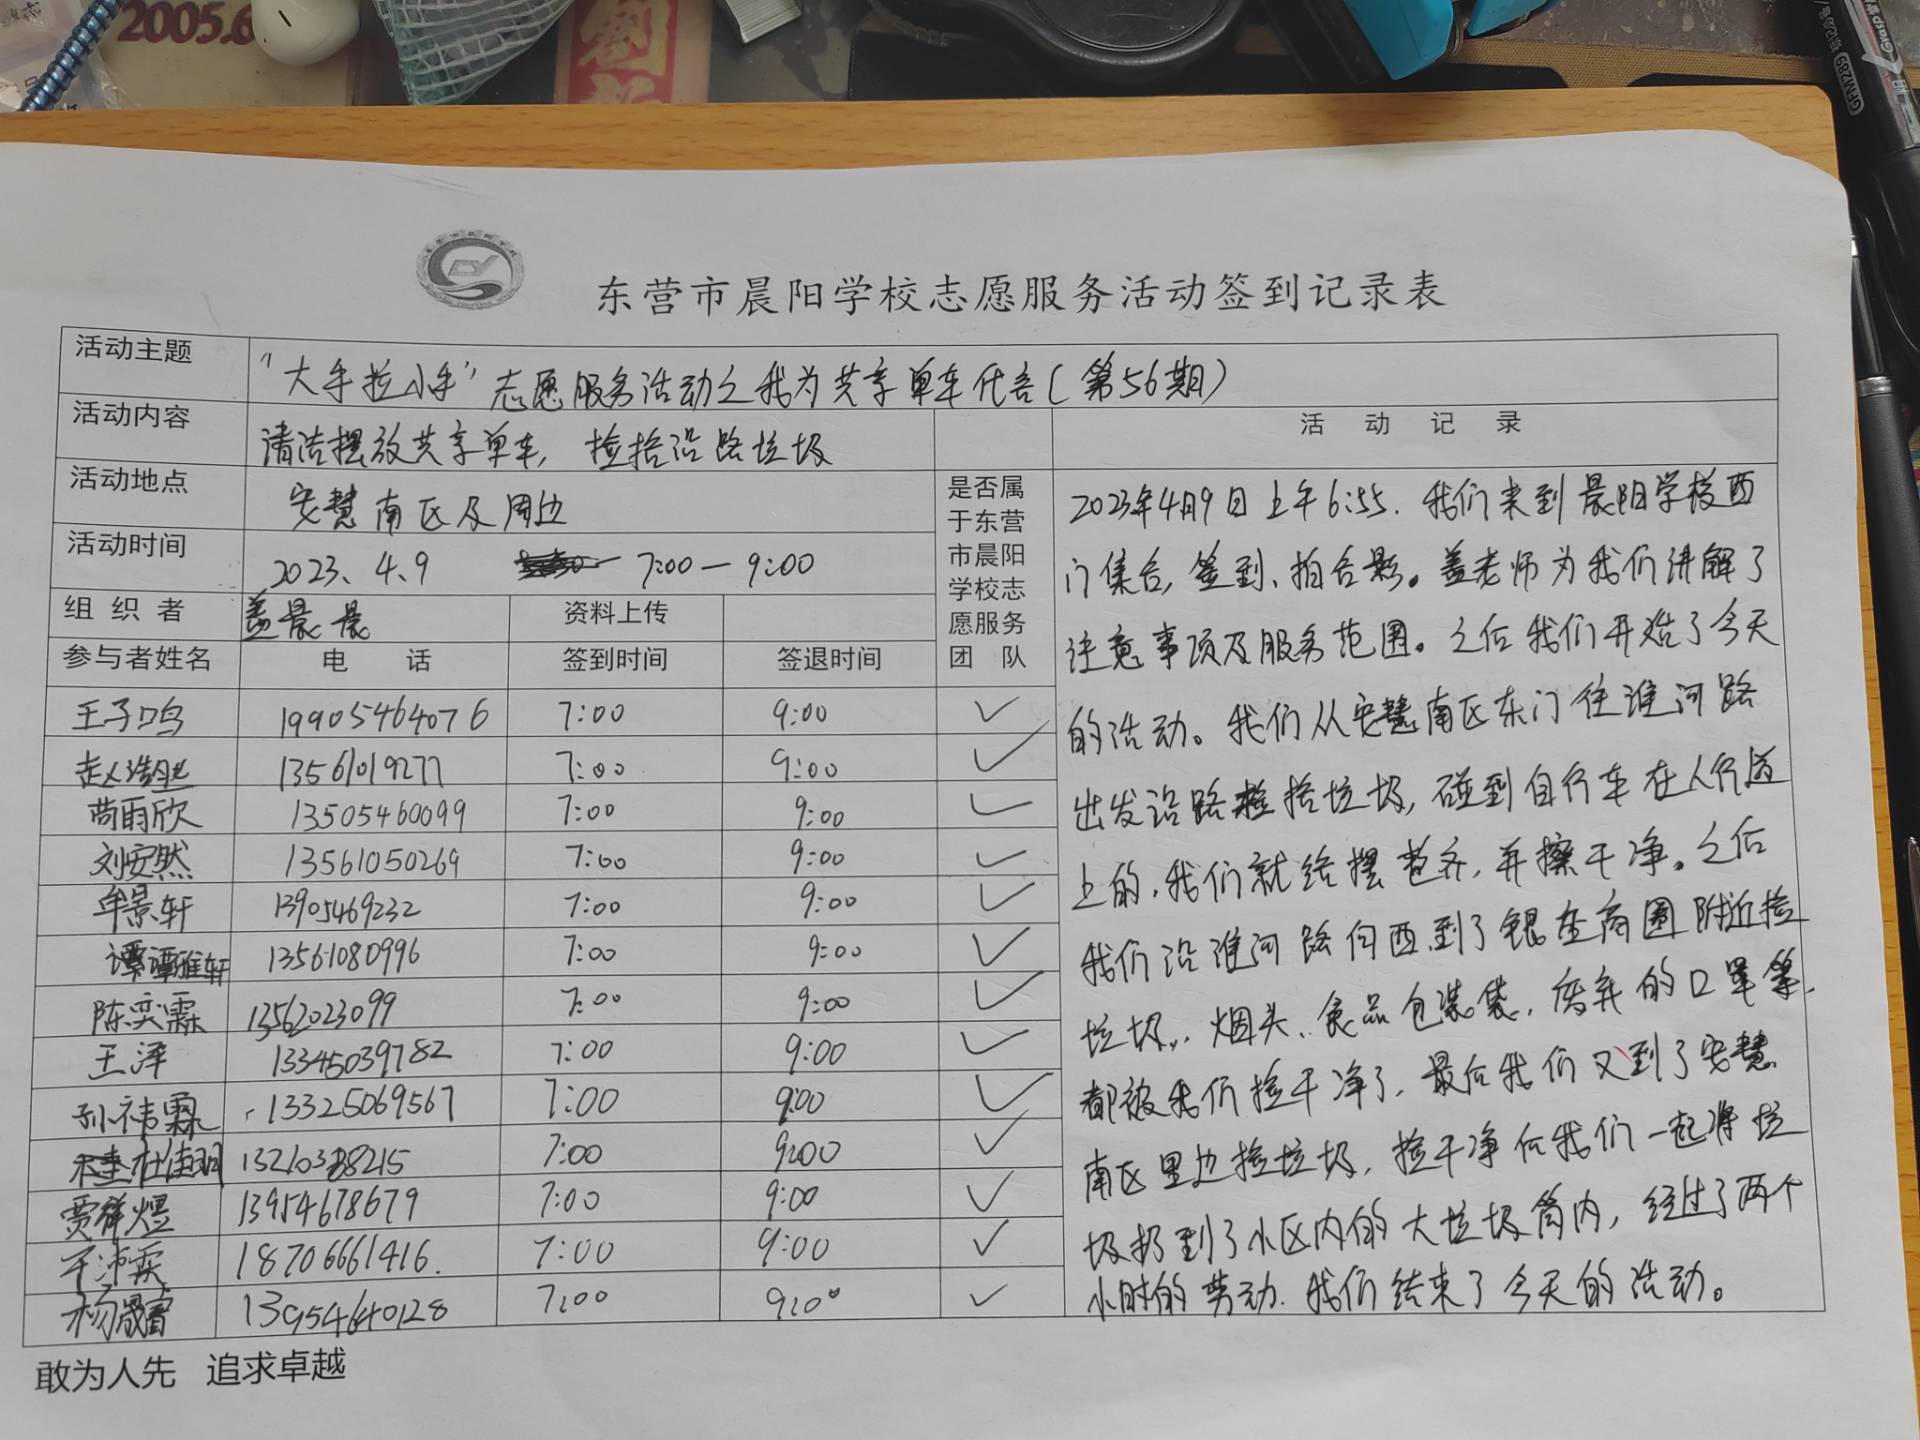 2005.6
GFM1289
东营市晨阳学校志愿服务活动签到记录表
活动主题 "大手拉小手"志愿服务活动之我为共享单车代言(第56期)
活动内容 清洁摆放共享单车, 捡拾沿路垃圾
活动地点 安慧南区及周边
活动时间 2023、4、9 7:00—9:00
组织者 盖晨晨 资料上传
参与者姓名 电话 签到时间 签退时间
是否属
于东营
市晨阳
学校志
愿服务
团队
王子鸣 19905464076 7:00 9:00 ✓
赵浩 13561019277 7:00 9:00 ✓
苘雨欣 13505460099 7:00 9:00 ✓
刘安然 13561050269 7:00 9:00 ✓
牟景轩 13905469232 7:00 9:00 ✓
谭雅轩 13561080996 7:00 9:00 ✓
陈奕霖 13562023099 7:00 9:00 ✓
王泽 13345039782 7:00 9:00 ✓
孙祎霖 13325069567 7:00 9:00 ✓
杜佳玥 7:00 9:00 ✓
贾祥煜 13954678679 7:00 9:00 ✓
于沛霖 18706661416. 7:00 9:00 ✓
杨晟 13954640128 7:00 9:00 ✓
活动记录
2023年4月9日上午6:55. 我们来到晨阳学校西
门集合, 签到、拍合影。盖老师为我们讲解了
注意事项及服务范围。之后我们开始了今天
的活动。我们从安慧南区东门往淮河路
出发沿路捡拾垃圾, 碰到自行车在人行道
上的, 我们就给摆整齐, 并擦干净。之后
我们沿淮河路向西, 到了银座商圈附近捡
垃圾, 烟头、食品包装袋, 废弃的口罩等,
都被我们捡干净了, 最后我们又到了安慧
南区里边捡垃圾, 捡干净后我们一起将垃
圾扔到了小区内的大垃圾筒内, 经过了两个
小时的劳动. 我们结束了今天的活动。
敢为人先 追求卓越